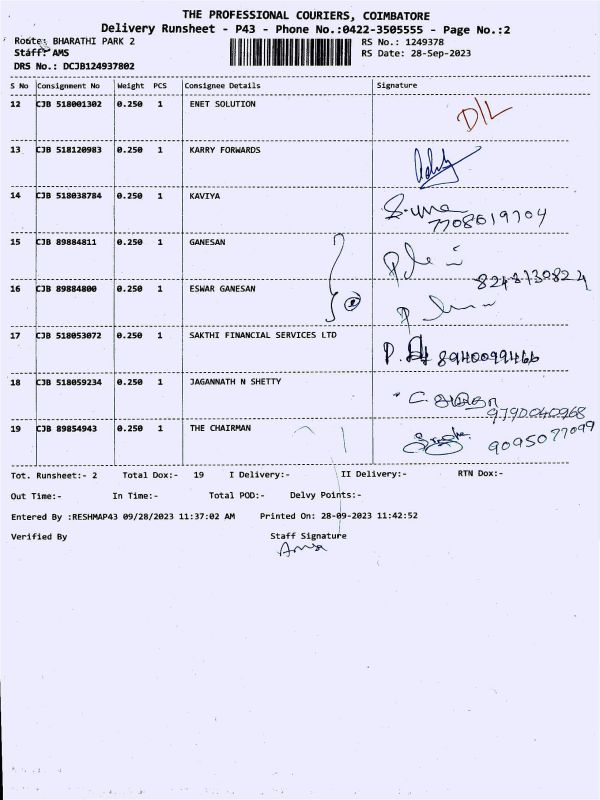 THE PROFESSIONAL COURIERS, COIMBATORE
Delivery Runsheet - P43 - Phone No.:0422-3505555 - Page No.:2
Route: BHARATHI PARK 2
RS No.: 1249378
Staff: AMS
RS Date: 28-Sep-2023
DRS No.: DCJB124937802
S No Consignment No Weight PCS Consignee Details Signature
12 CJB 518001302 0.250 1 ENET SOLUTION D/L
13 CJB 518120983 0.250 1 KARRY FORWARDS
14 CJB 518038784 0.250 1 KAVIYA
7708019704
15 CJB 89884811 0.250 1 GANESAN
16 CJB 89884800 0.250 1 ESWAR GANESAN
17 CJB 518053072 0.250 1 SAKTHI FINANCIAL SERVICES LTD
8940099466
18 CJB 518059234 0.250 1 JAGANNATH N SHETTY
9790040968
19 CJB 89854943 0.250 1 THE CHAIRMAN
9095077099
Tot. Runsheet:- 2 Total Dox:- 19 I Delivery:- II Delivery:- RTN Dox:-
Out Time:- In Time:- Total POD:- Delvy Points:-
Entered By :RESHMAP43 09/28/2023 11:37:02 AM Printed On: 28-09-2023 11:42:52
Verified By Staff Signature